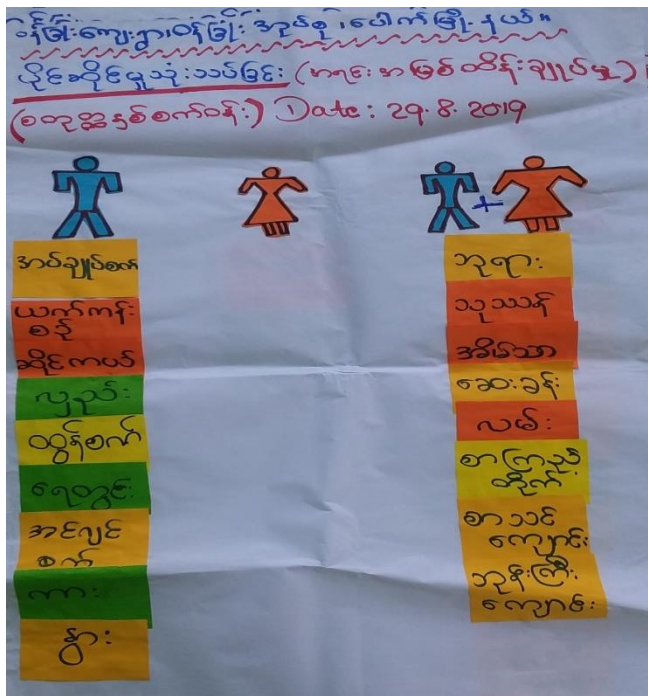 ဝန်ခြုံးကျေးရွာ၊ဝန်ခြုံး အုပ်စု၊ပေါက်မြို့နယ်။
ပိုင်ဆိုင်မှုသုံးသပ်ခြင်း (အရင်းအမြစ်ထိန်းချုပ်မှု)
(စတုတ္ထနှစ်စက်ဝန်း) Date: 29.8.2019
+
အပ်ချုပ်စက်
ယက်ကန်း
စင်
ဆိုင်ကယ်
လှည်း
ထွန်စက်
ရေတွင်း
အင်ဂျင်
စက်
ကား
နွား
ဘုရား
သုဿန်
အိမ်သာ
ဆေးခန်း
လမ်း
စာကြည့်
တိုက်
စာသင်
ကျောင်း
ဘုန်းကြီး
ကျောင်း